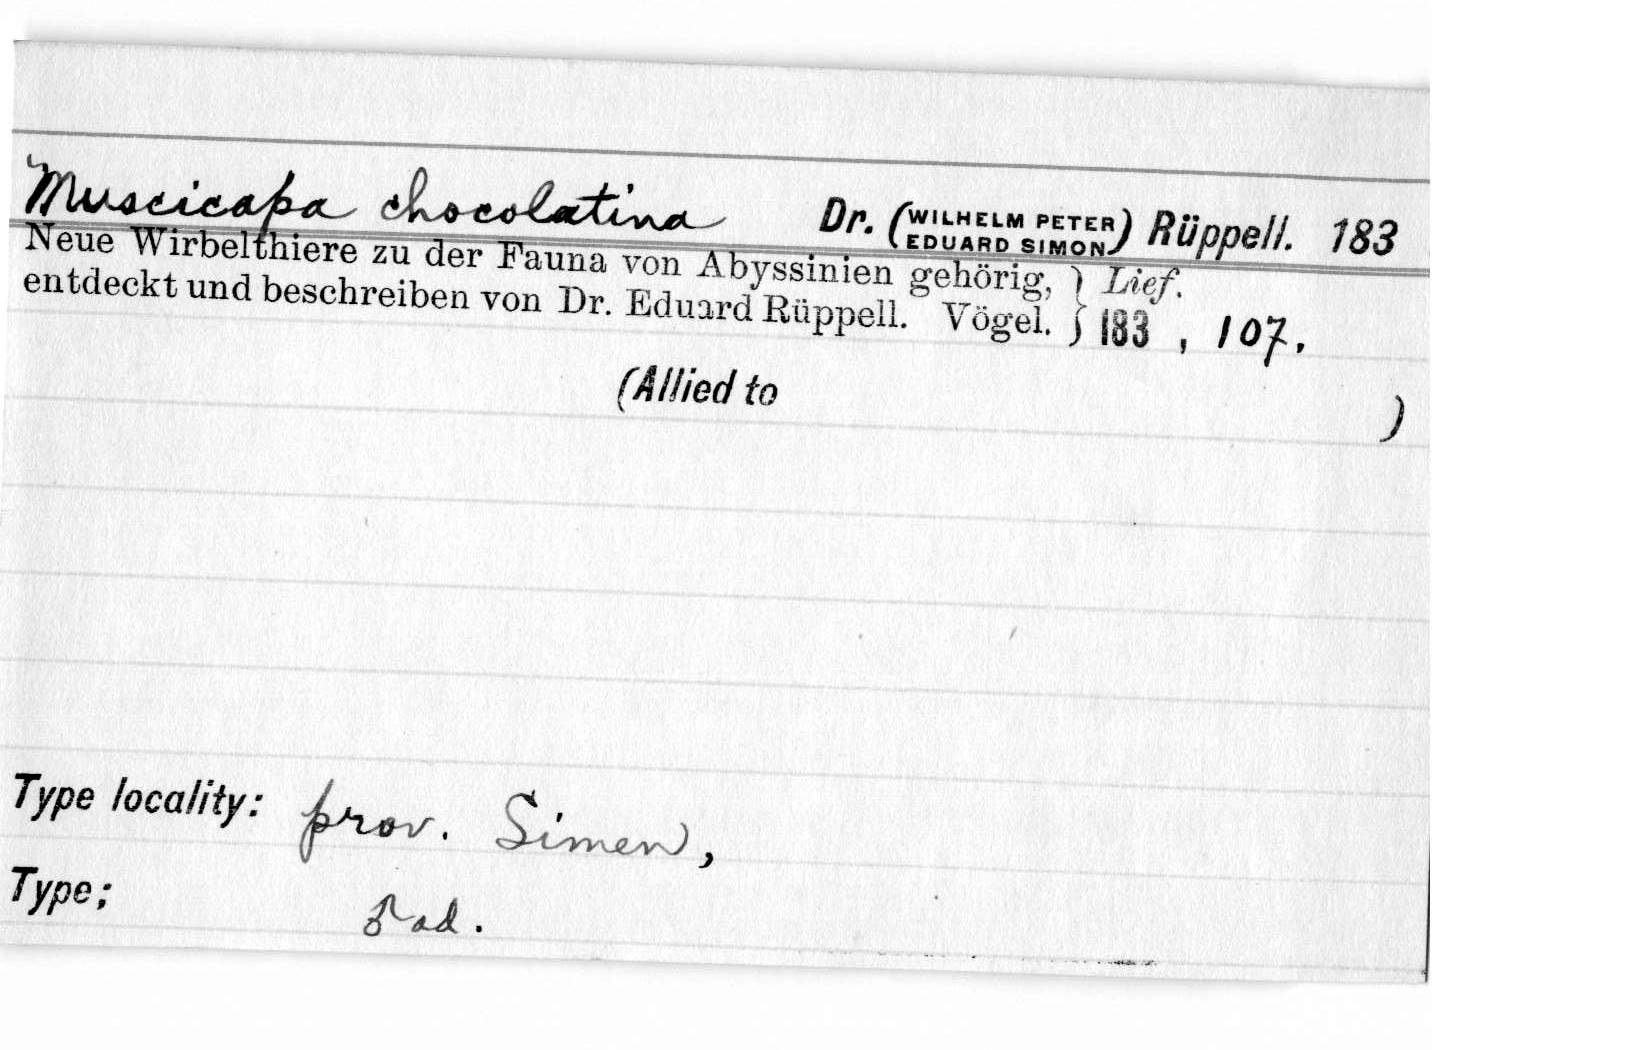 Muscicapa chocolatina Dr. (WILHELM PETER EDUARD SIMON) Rüppell. 183
Neue Wirbelthiere zu der Fauna von Abyssinien gehörig, } Lief.
entdeckt und beschreiben von Dr. Eduard Rüppell. Vögel. } 183 , 107.
(Allied to )
Type locality: prov. Simen,
Type; ♂ ad.